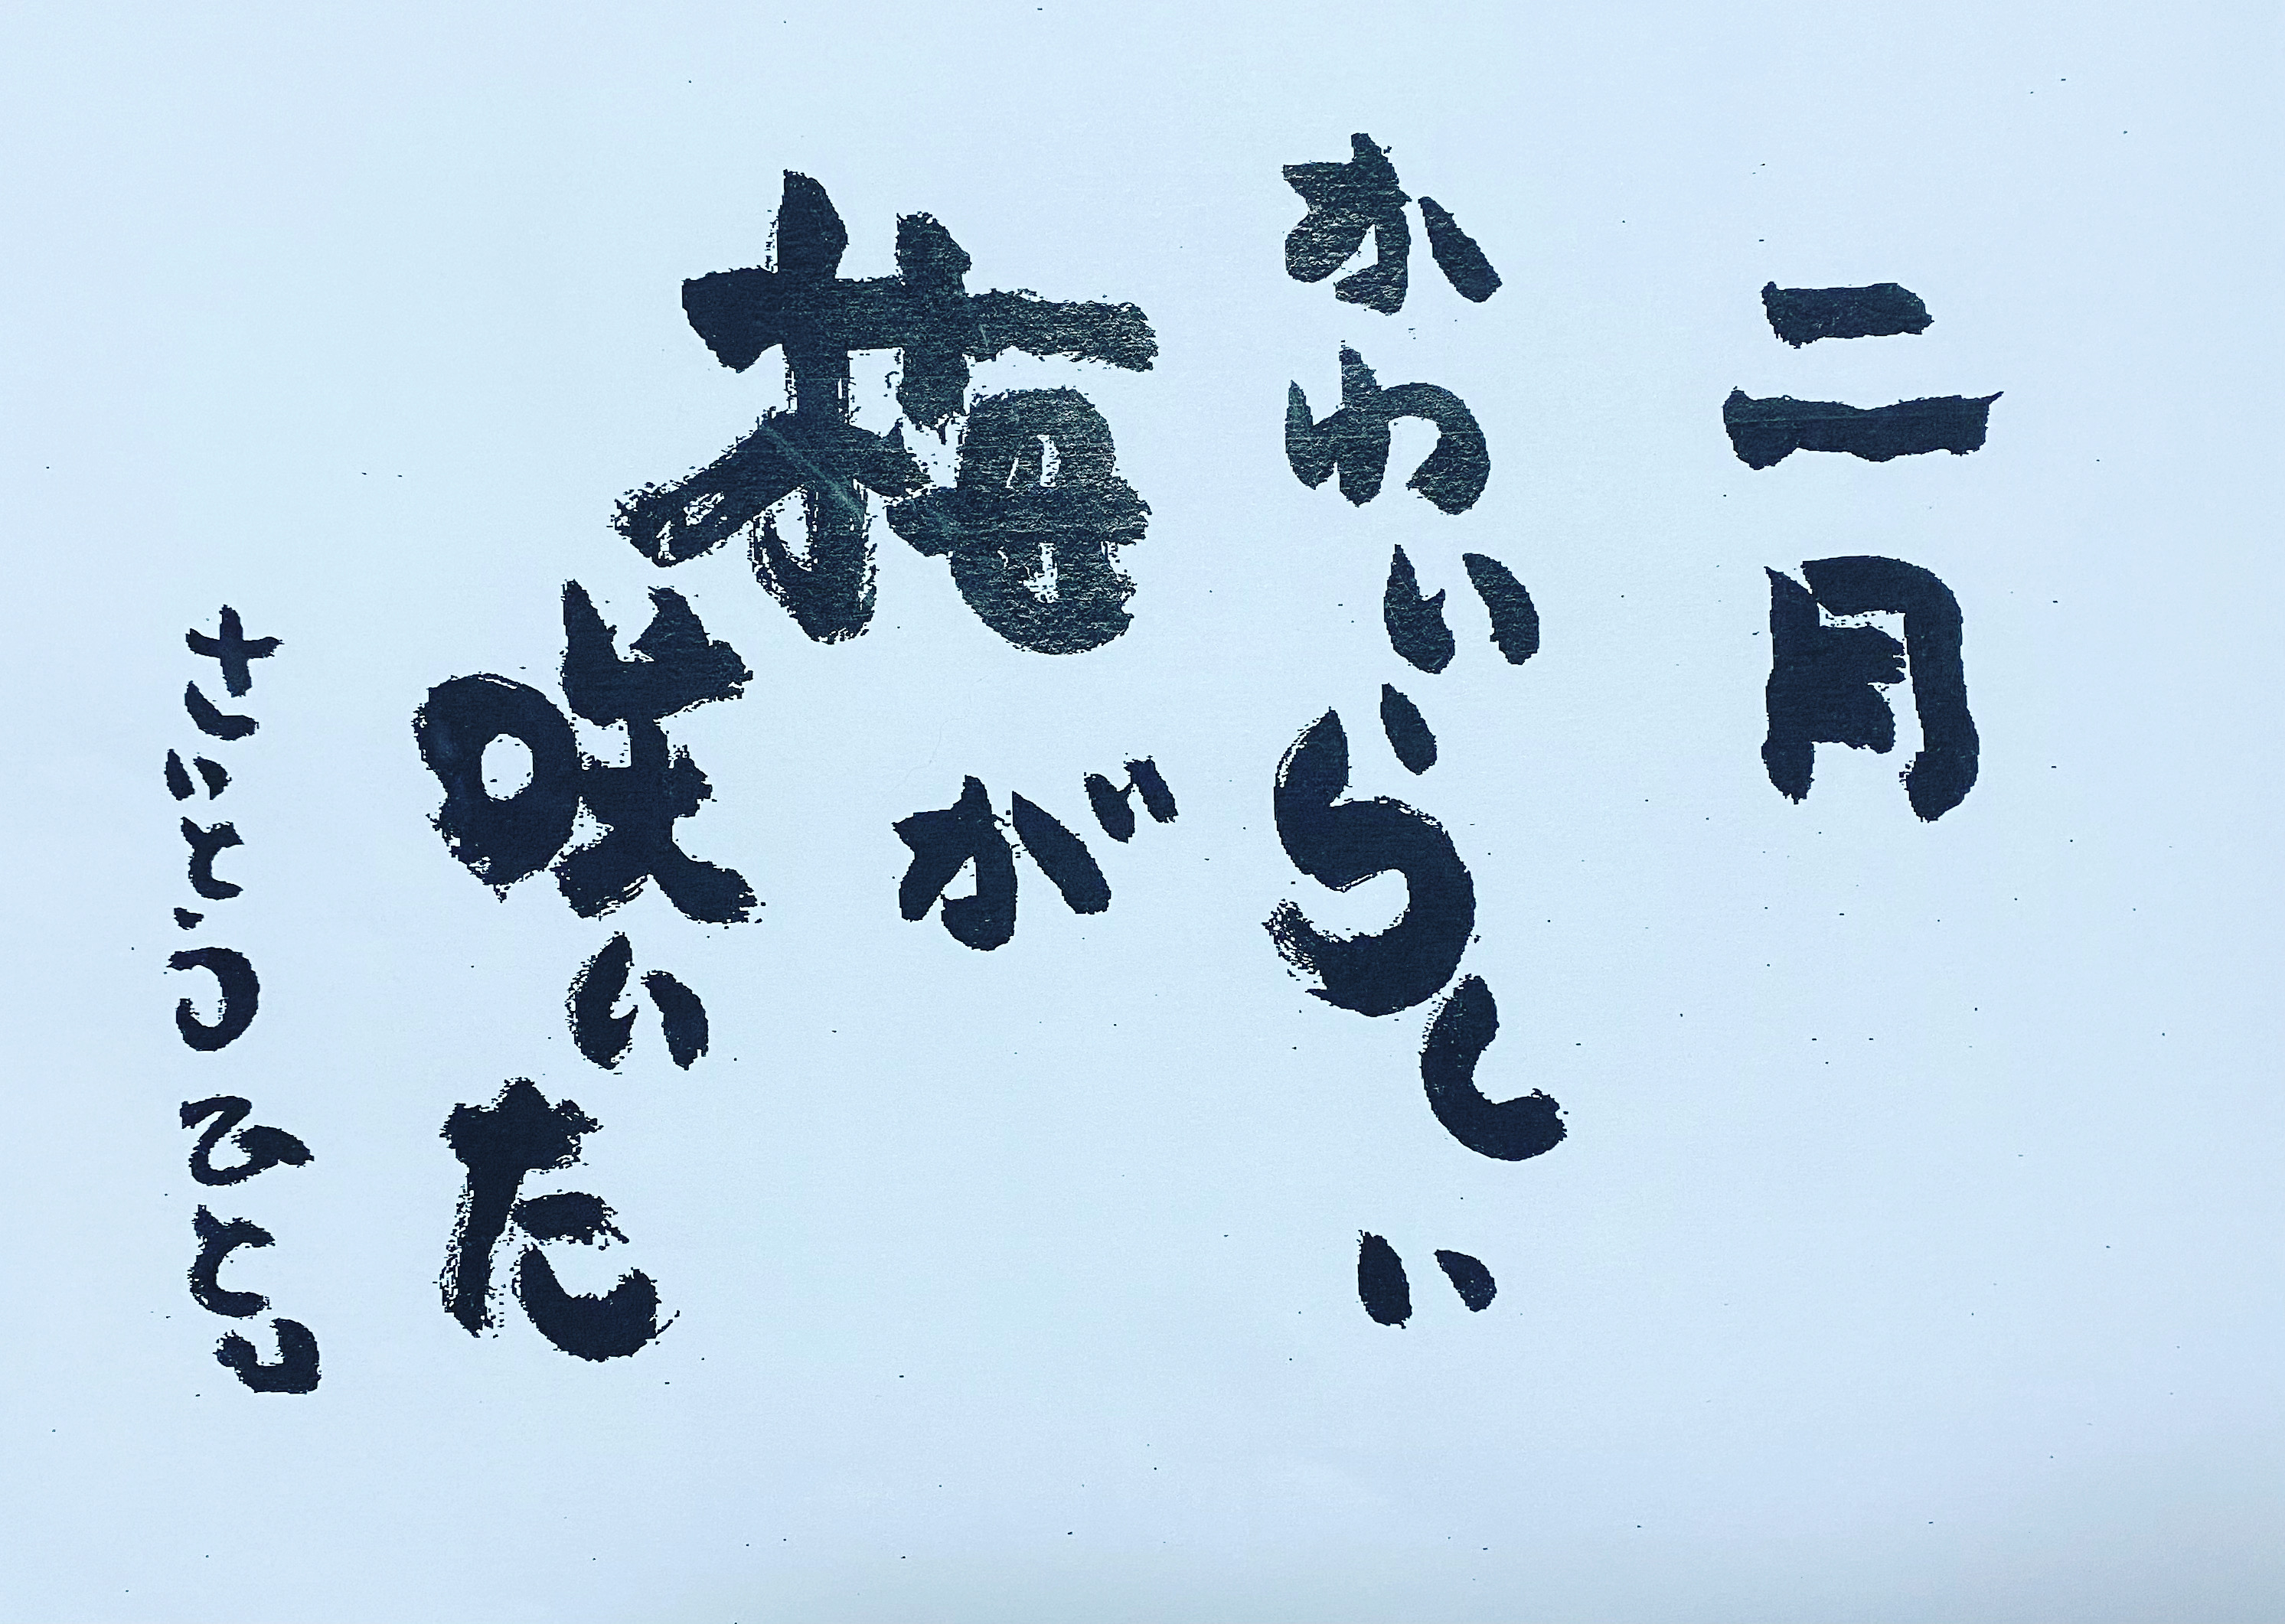 二月
かわいらしい
梅が
咲いた
さいとうひとり